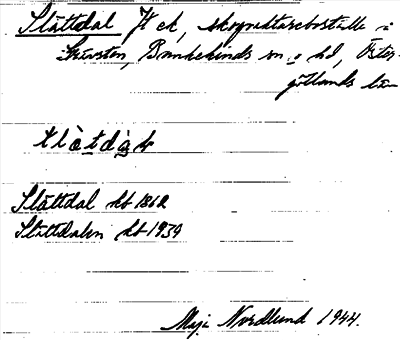 Slättdal H ek, skogvaktareboställe i
Skursten, Bankekinds sn o hd, Öster-
götlands län
slàtdɑ̀l
Slättdal hb 1862
Slättdalen hb 1939
Maja Nordlund 1944.